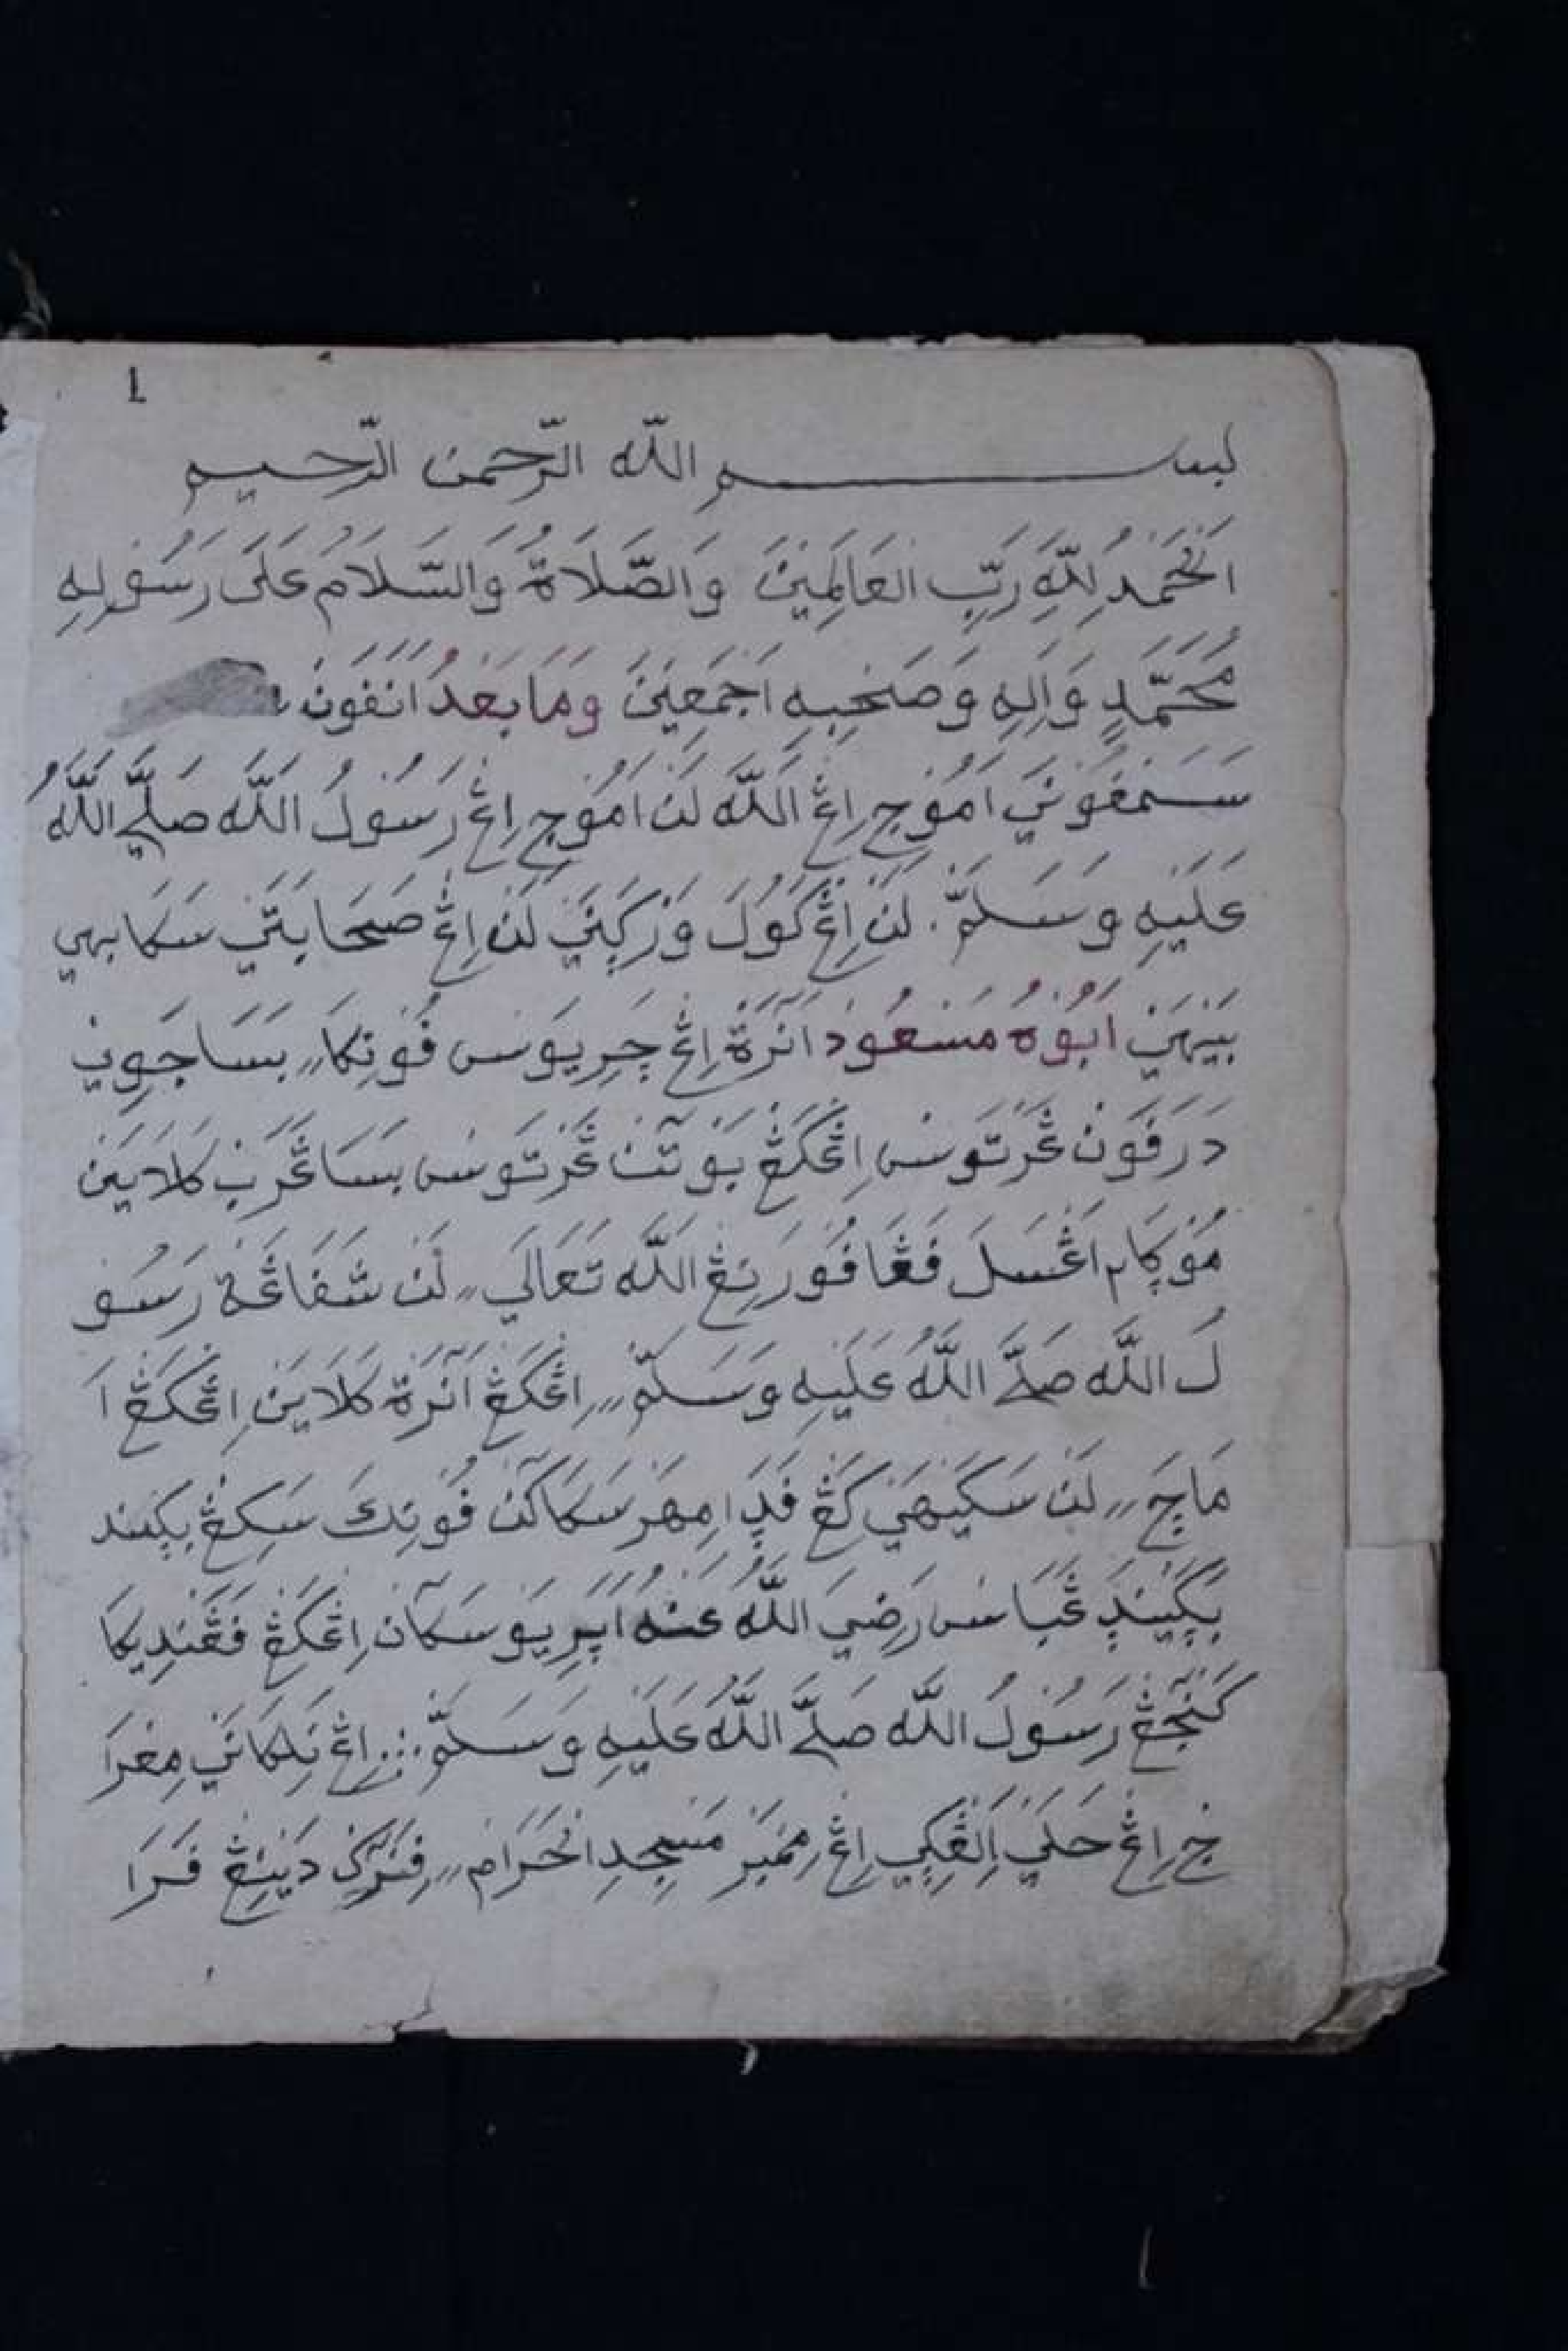 1
بســـــــم الله الرّحمن الرّحيم
اَلْحَمْدُ لِلّٰهِ رَبِّ الْعَالَمِيْنَ وَالصَّلَاةُ وَالسَّلَامُ عَلَى رَسُوْلِهِ
مُحَمَّدٍ وَاٰلِهِ وَصَحْبِهِ اَجْمَعِيْنَ وَمَا بَعْدُ انَفَوْنْ
سَسَمْفُوْنَيْ اَمُوْجِ اِڠْ اللّٰه لَنْ اَمُوْجِ اِڠْ رَسُوْلُ اللّٰه صَلَّي اللّٰهُ
عَلَيْهِ وَسَلَّمَ. لَنْ اِڠْ كَوُلَ وَرْݢَنَيْ لَنْ اِڠْ صَحَابَتَيْ سَكَابهي
بَيْنْهَيْ اَبُوْهُ مَسْعُوْد اَنْرَةْ اِڠْ چَرِيَوْسْ فُوْنِكَا,, بَسَا جَوِيْ
دَرَفَوْنْ ڠَرْتَوْسْ اِڠْكَڠْ بَوْتٓنْ ڠَرْتَوْسْ بَسَا ڠَرَبْ كَلَايَنْ
مُوْݢَامْ اَڠْسَلَ فَڠَافُوْرَنِڠْ اللّٰه تَعَالَي,, لَنْ شَفَاعَةْ رَسُوْ
لُ اللّٰه صَلَّي اللّٰهُ عَلَيْهِ وَسَلَّمَ,, اِڠْكَڠْ اَنْرَةْ كَلَايَنْ اِڠْكَڠْ اَ
مَاچَ,, لَنْ سَكَيْهَيْ كَڠْ فَدَا مِهَرْسَكَاكٓنْ فُوْنِكَ سَكِڠْ بݢيند
بَݢِيْنْدَ عَبَاسْ رَضِيَ اللّٰهُ عَنْهُ اَچَرِيَوْسَكٓنْ اِڠْكَڠْ فَڠَنْدِيْكَا
كَنْجٓڠْ رَسُوْلُ اللّٰه صَلَّي اللّٰهُ عَلَيْهِ وَسَلَّمَ ∴ اِڠْ نَلِكَانَيْ مِعْرَا
جْ اِڠْ حَلَيْ اِڠْكِي اِڠْ مِمْبَرْ مَسْجِدِ الْحَرَامْ,, فِنَرٓكْ دَيْنِڠْ فَرَا